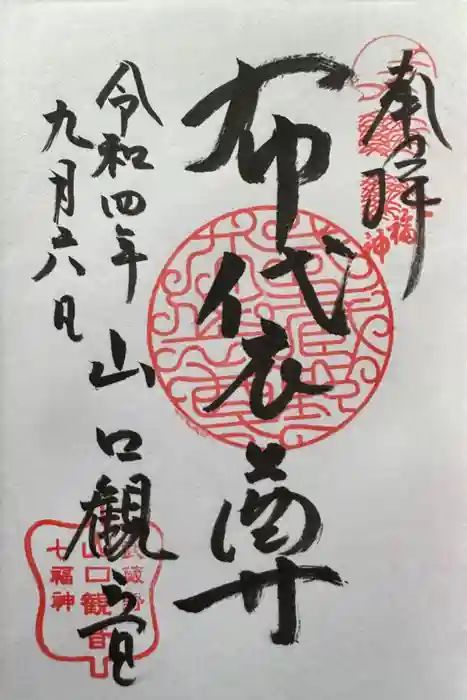 奉拝
布代衣尊
山口観音
令和四年
九月六日
福
神
山口観音
七福神